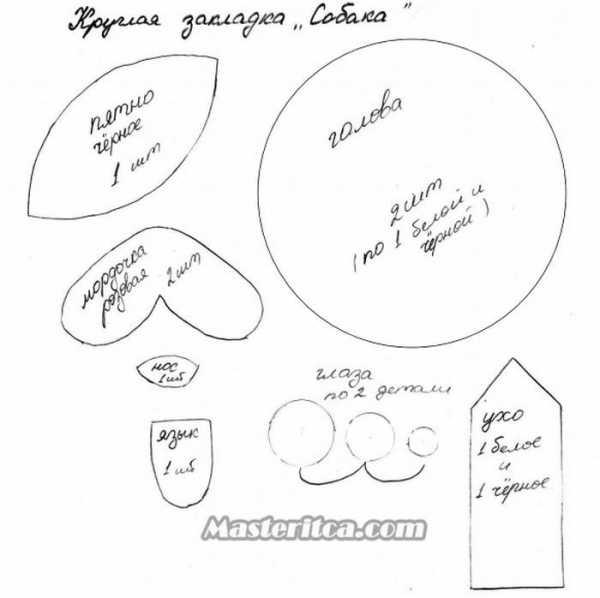 Круглая закладка „Собака"
пятно
чёрное
1 шт
голова
2 шт
(по 1 белой и
чёрной)
мордочка
розовая 2 шт
нос
1 шт
глаза
по 2 детали
язык
1 шт
ухо
1 белое
и
1 чёрное
Masteritca.com